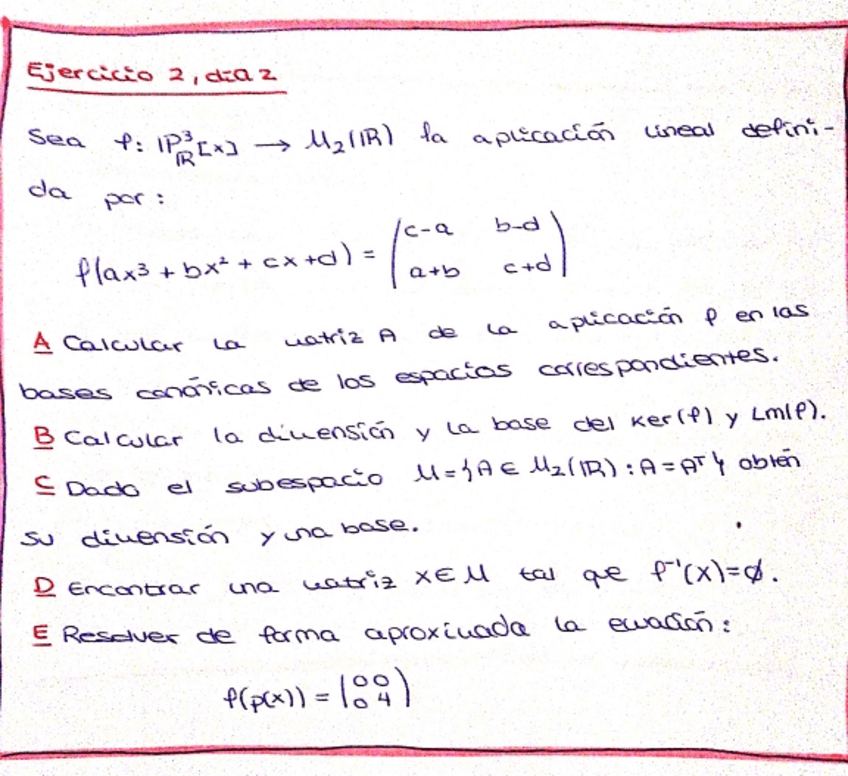 Ejercicio 2, día 2
Sea f: P³ℝ[x] → M₂(ℝ) la aplicación lineal defini-
da por:
f(ax³ + bx² + cx + d) = (c-a b-d
a+b c+d)
A Calcular la matriz A de la aplicación f en las
bases canónicas de los espacios correspondientes.
B Calcular la dimensión y la base del Ker(f) y Im(f).
C Dado el subespacio M = {A ∈ M₂(ℝ) : A = Aᵀ} obtén
su dimensión y una base.
D Encontrar una matriz X ∈ M tal que f⁻¹(X) = ∅.
E Resolver de forma aproximada la ecuación:
f(p(x)) = (0 0
0 4)